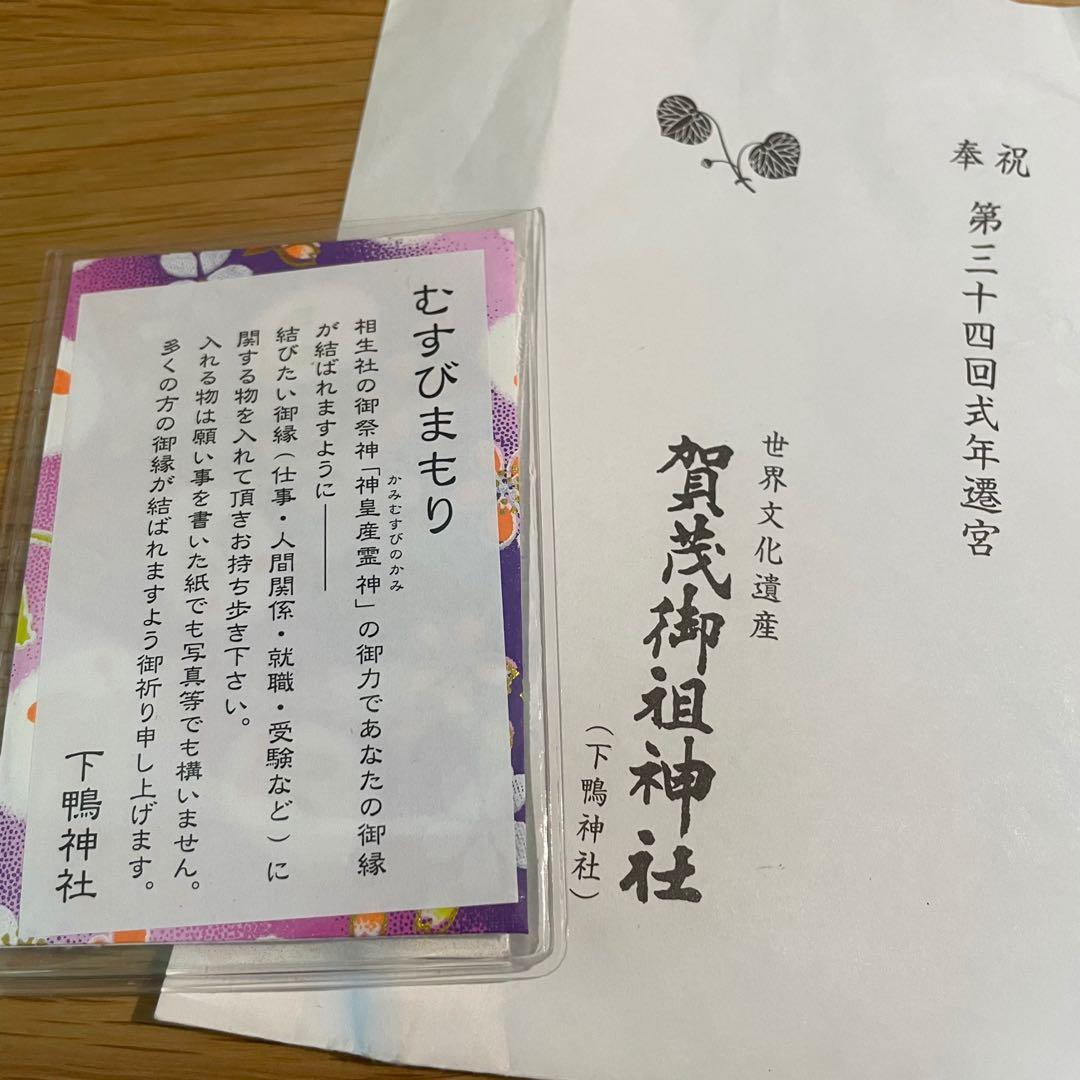 むすびまもり
相生社の御祭神「神皇産霊神」の御力であなたの御縁
かみむすびのかみ
が結ばれますように――
結びたい御縁(仕事・人間関係・就職・受験など)に
関する物を入れて頂きお持ち歩き下さい。
入れる物は願い事を書いた紙でも写真等でも構いません。
多くの方の御縁が結ばれますよう御祈り申し上げます。
下鴨神社
奉祝
第三十四回式年遷宮
世界文化遺産
賀茂御祖神社
(下鴨神社)